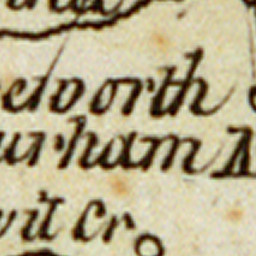 edworth
urham A
vit Cr